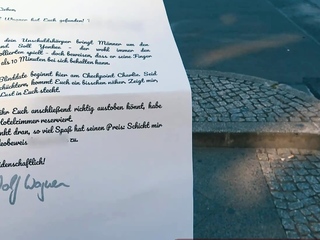 Cohen,
Wagner hat Euch gefunden!
dein Unschuldskörper bringt Männer um den
und Soll Yankee - der wohl immer den
spielt - doch beweisen, dass er seine Finger
als 10 Minuten bei sich behalten kann.
Blinddate beginnt hier am Checkpoint Charlie. Seid
schüchtern, kommt Euch ein bisschen näher. Zeigt mir,
Lust in Euch steckt.
ihr Euch anschließend richtig austoben könnt, habe
Hotelzimmer reserviert.
denkt dran, so viel Spaß hat seinen Preis: Schickt mir
Videobeweis
Leidenschaftlich!
Wolf Wagner